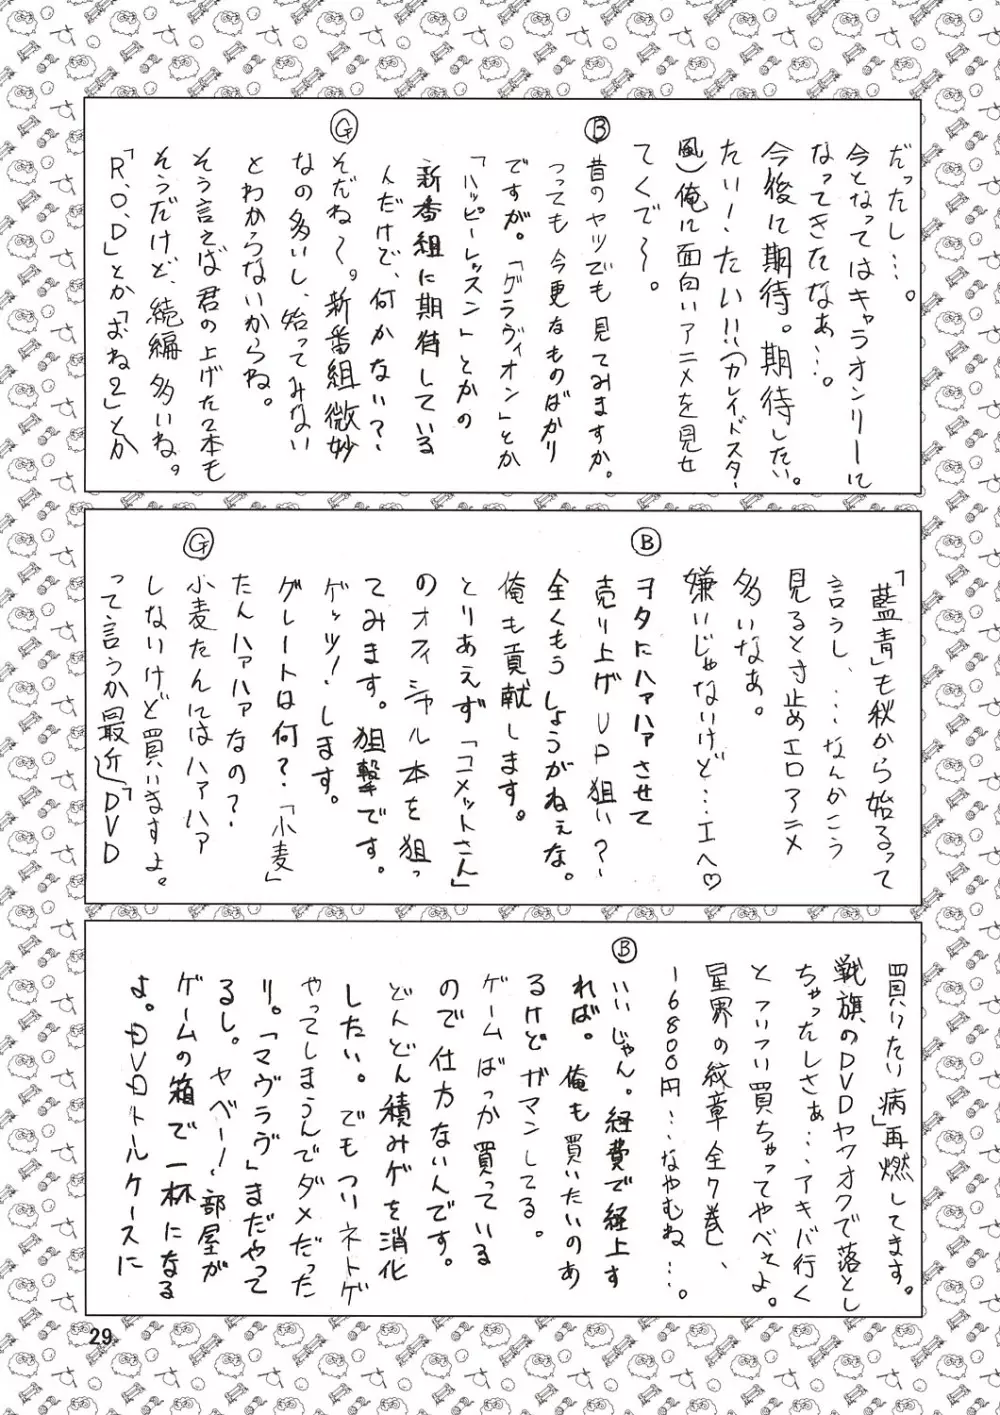 だったし…。
今となってはキャラオンリーに
なってきたなぁ…。
今後に期待。期待したい。
たい!たい!!(カレイドスター
風)俺に面白いアニメを見せ
てくで〜。
Ⓑ
昔のヤツでも見てみますか。
つっても今更なものばかり
ですが。「グラヴィオン」とか
「ハッピーレッスン」とかの
新番組に期待している
んだけで、何かない?
Ⓖ
そだね〜。新番組微妙
なの多いし、始ってみない
とわからないからね。
そう言えば君の上げた2本も
そうだけど、続編多いね。
「R.O.D」とか「おね2」とか
「藍青」も秋から始るって
言うし、…なんかこう
見ると寸止めエロアニメ
多いなぁ。
嫌いじゃないけど…エヘ♡
Ⓑ
ヲタにハァハァさせて
売り上げUP狙い?
全くもうしょうがねぇな。
俺も貢献します。
とりあえず「コメットさん」
のオフィシャル本を狙っ
てみます。狙撃です。
ゲッツ!します。
グレートは何?「小麦」
たんハァハァなの?
Ⓖ
小麦たんにはハァハァ
しないけど買いますよ。
って言うか最近「DVD
買いたい病」再燃してます。
戦旗のDVDヤフオクで落とし
ちゃったしさぁ…アキバ行く
とついつい買っちゃってやべぇよ。
星界の紋章全7巻、
16800円…なやむね…。
Ⓑ
いいじゃん。経費で経上す
れば。俺も買いたいのあ
るけどガマンしてる。
ゲームばっか買っている
ので仕方ないんです。
どんどん積みゲを消化
したい。でもついネトゲ
やってしまうんでダメだった
り。「マヴラヴ」まだやって
るし。ヤベー!部屋が
ゲームの箱で一杯になる
よ。DVDトルケースに
29